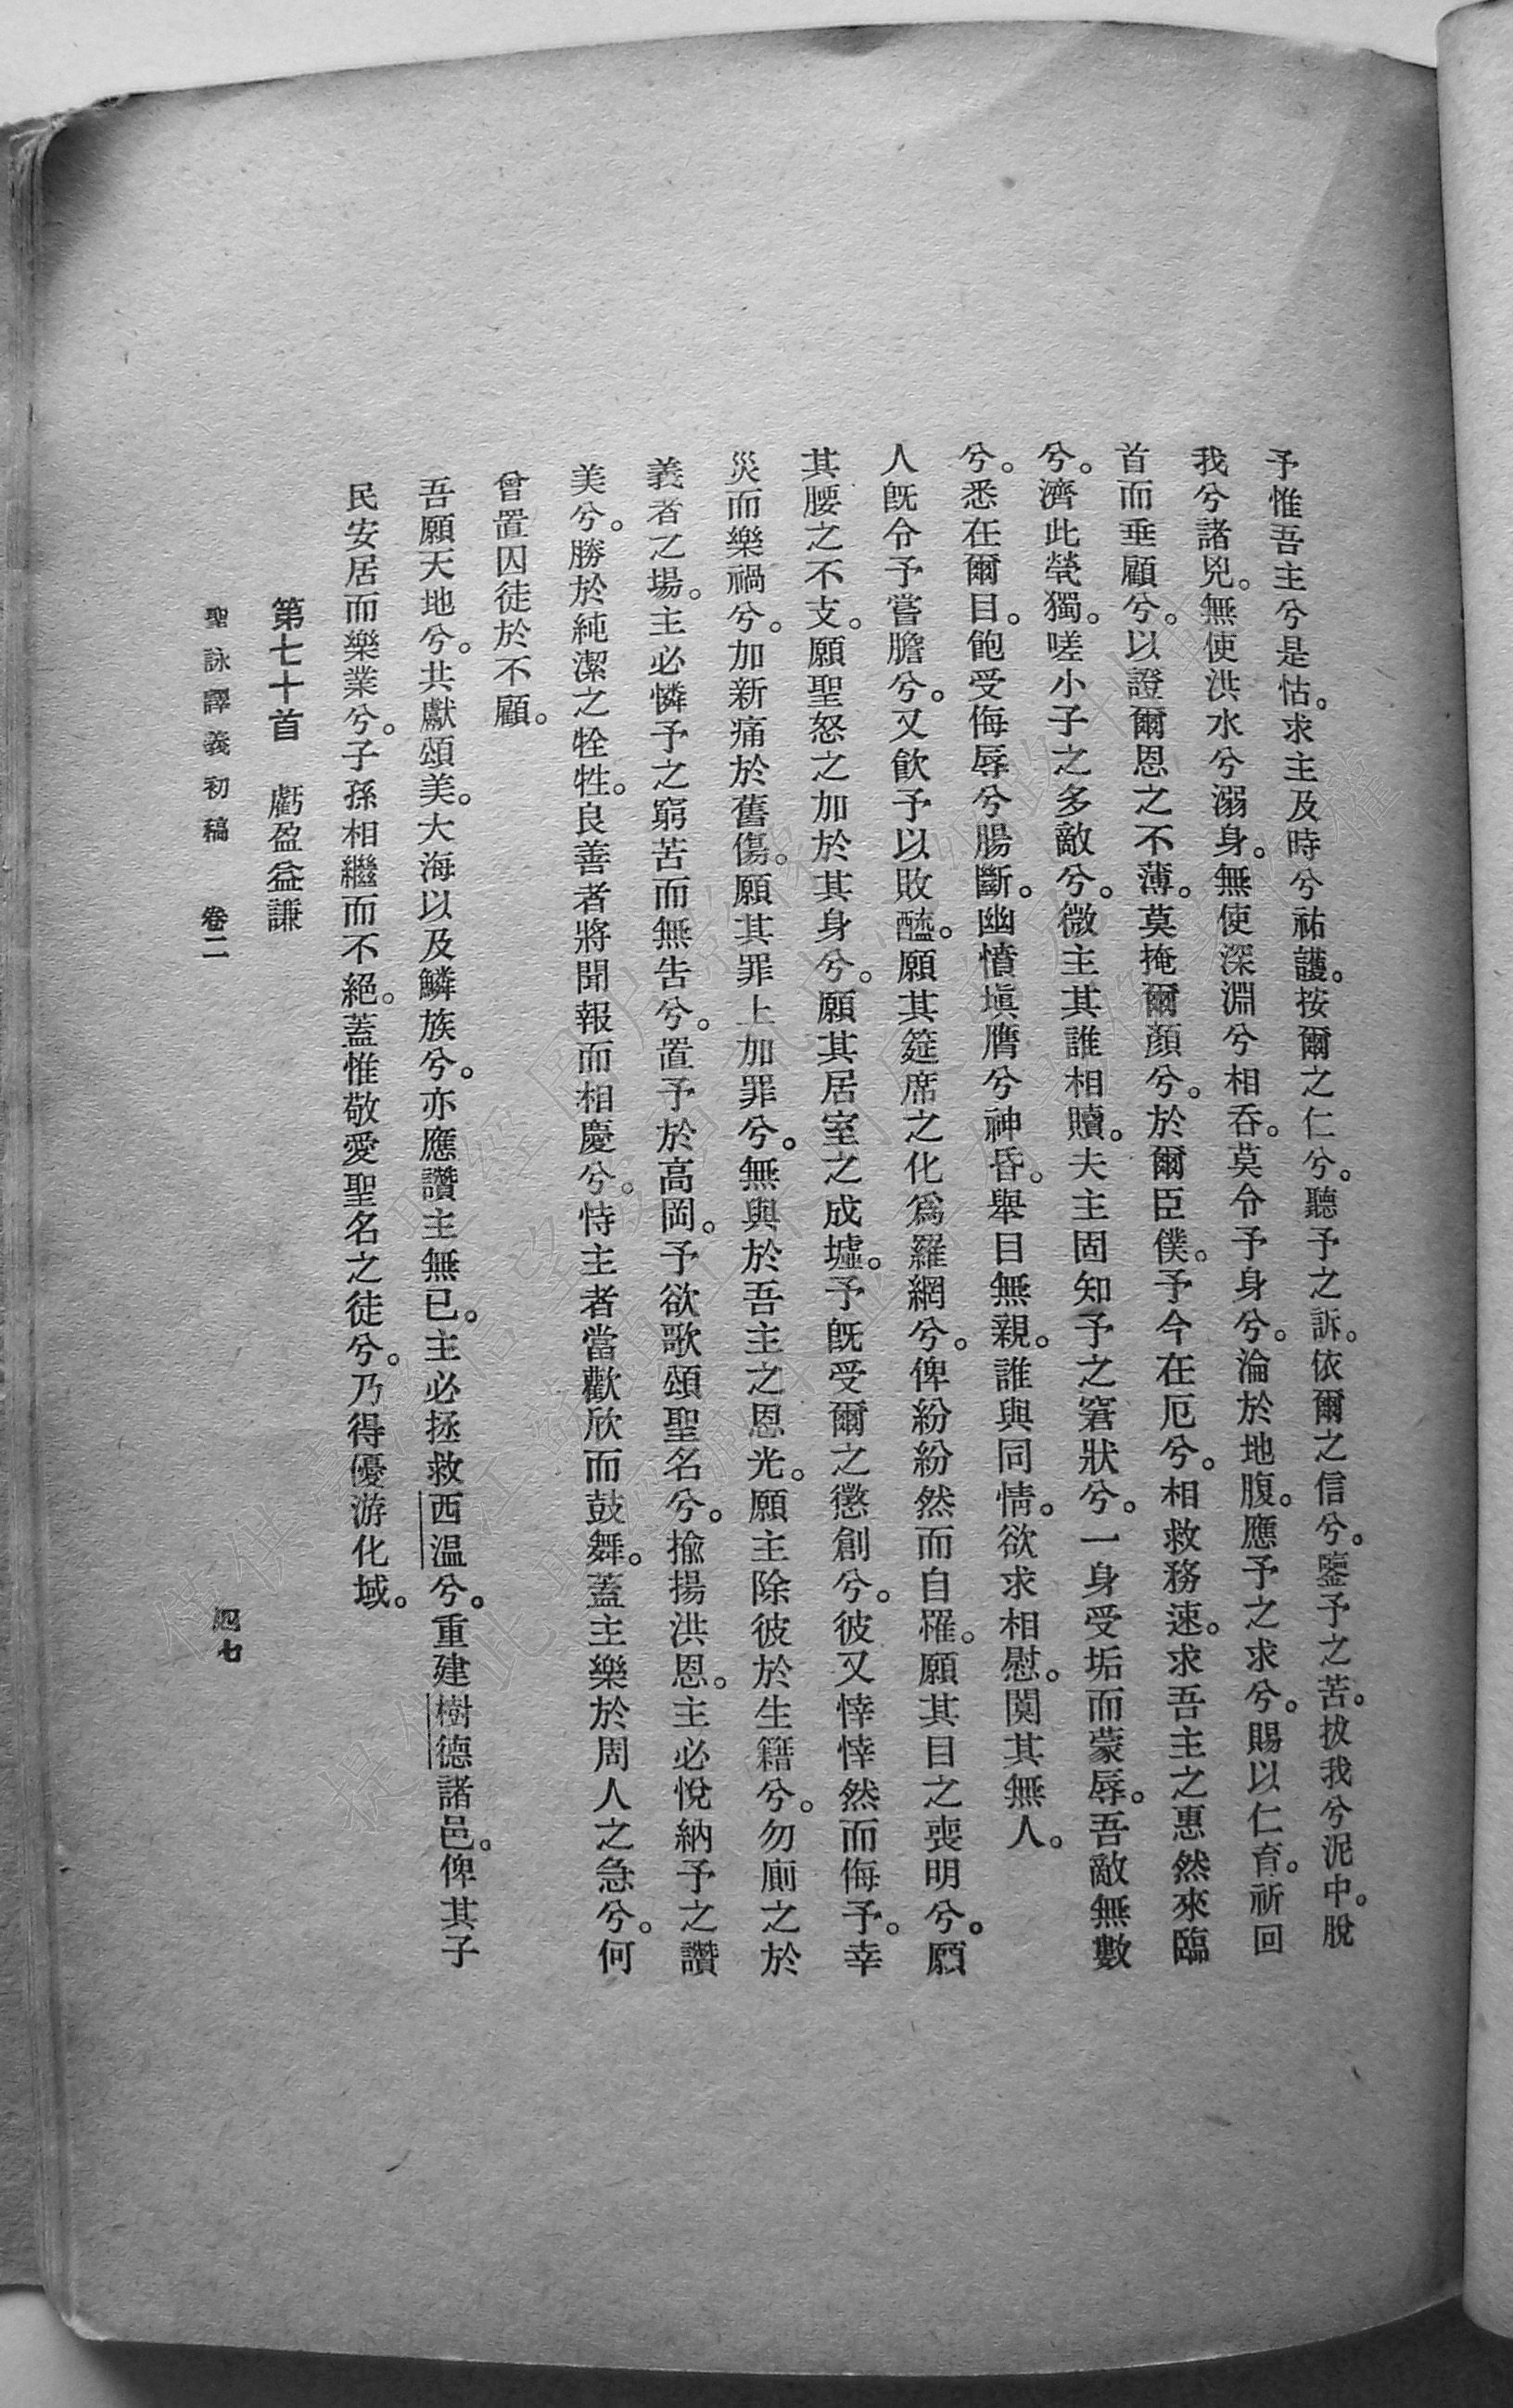 予惟吾主兮是怙。求主及時兮祐護。按爾之仁兮。聽予之訴。依爾之信兮。鑒予之苦。拔我兮泥中。脫
我兮諸兇。無使洪水兮溺身。無使深淵兮相吞。莫令予身兮。淪於地腹。應予之求兮。賜以仁育。祈回
首而垂顧兮。以證爾恩之不薄。莫掩爾顏兮。於爾臣僕。予今在厄兮。相救務速。求吾主之惠然來臨
兮。濟此煢獨。嗟小子之多敵兮。微主其誰相贖。夫主固知予之窘狀兮。一身受垢而蒙辱。吾敵無數
兮。悉在爾目。飽受侮辱兮腸斷。幽憤塡膺兮神昏。舉目無親。誰與同情。欲求相慰。闃其無人。
人旣令予嘗膽兮。又飲予以敗醯。願其筵席之化爲羅網兮。俾紛紛然而自罹。願其目之喪明兮。願
其腰之不支。願聖怒之加於其身兮。願其居室之成墟。予旣受爾之懲創兮。彼又悻悻然而侮予。幸
災而樂禍兮。加新痛於舊傷。願其罪上加罪兮。無與於吾主之恩光。願主除彼於生籍兮。勿廁之於
義者之場。主必憐予之窮苦而無告兮。置予於高岡。予欲歌頌聖名兮。揄揚洪恩。主必悅納予之讚
美兮。勝於純潔之牷牲。良善者將聞報而相慶兮。恃主者當歡欣而鼓舞。蓋主樂於周人之急兮。何
曾置囚徒於不顧。
吾願天地兮。共獻頌美。大海以及鱗族兮。亦應讚主無已。主必拯救西温兮。重建樹德諸邑。俾其子
民安居而樂業兮。子孫相繼而不絕。蓋惟敬愛聖名之徒兮。乃得優游化域。
第七十首 虧盈益謙
聖詠譯義初稿 卷二 四七